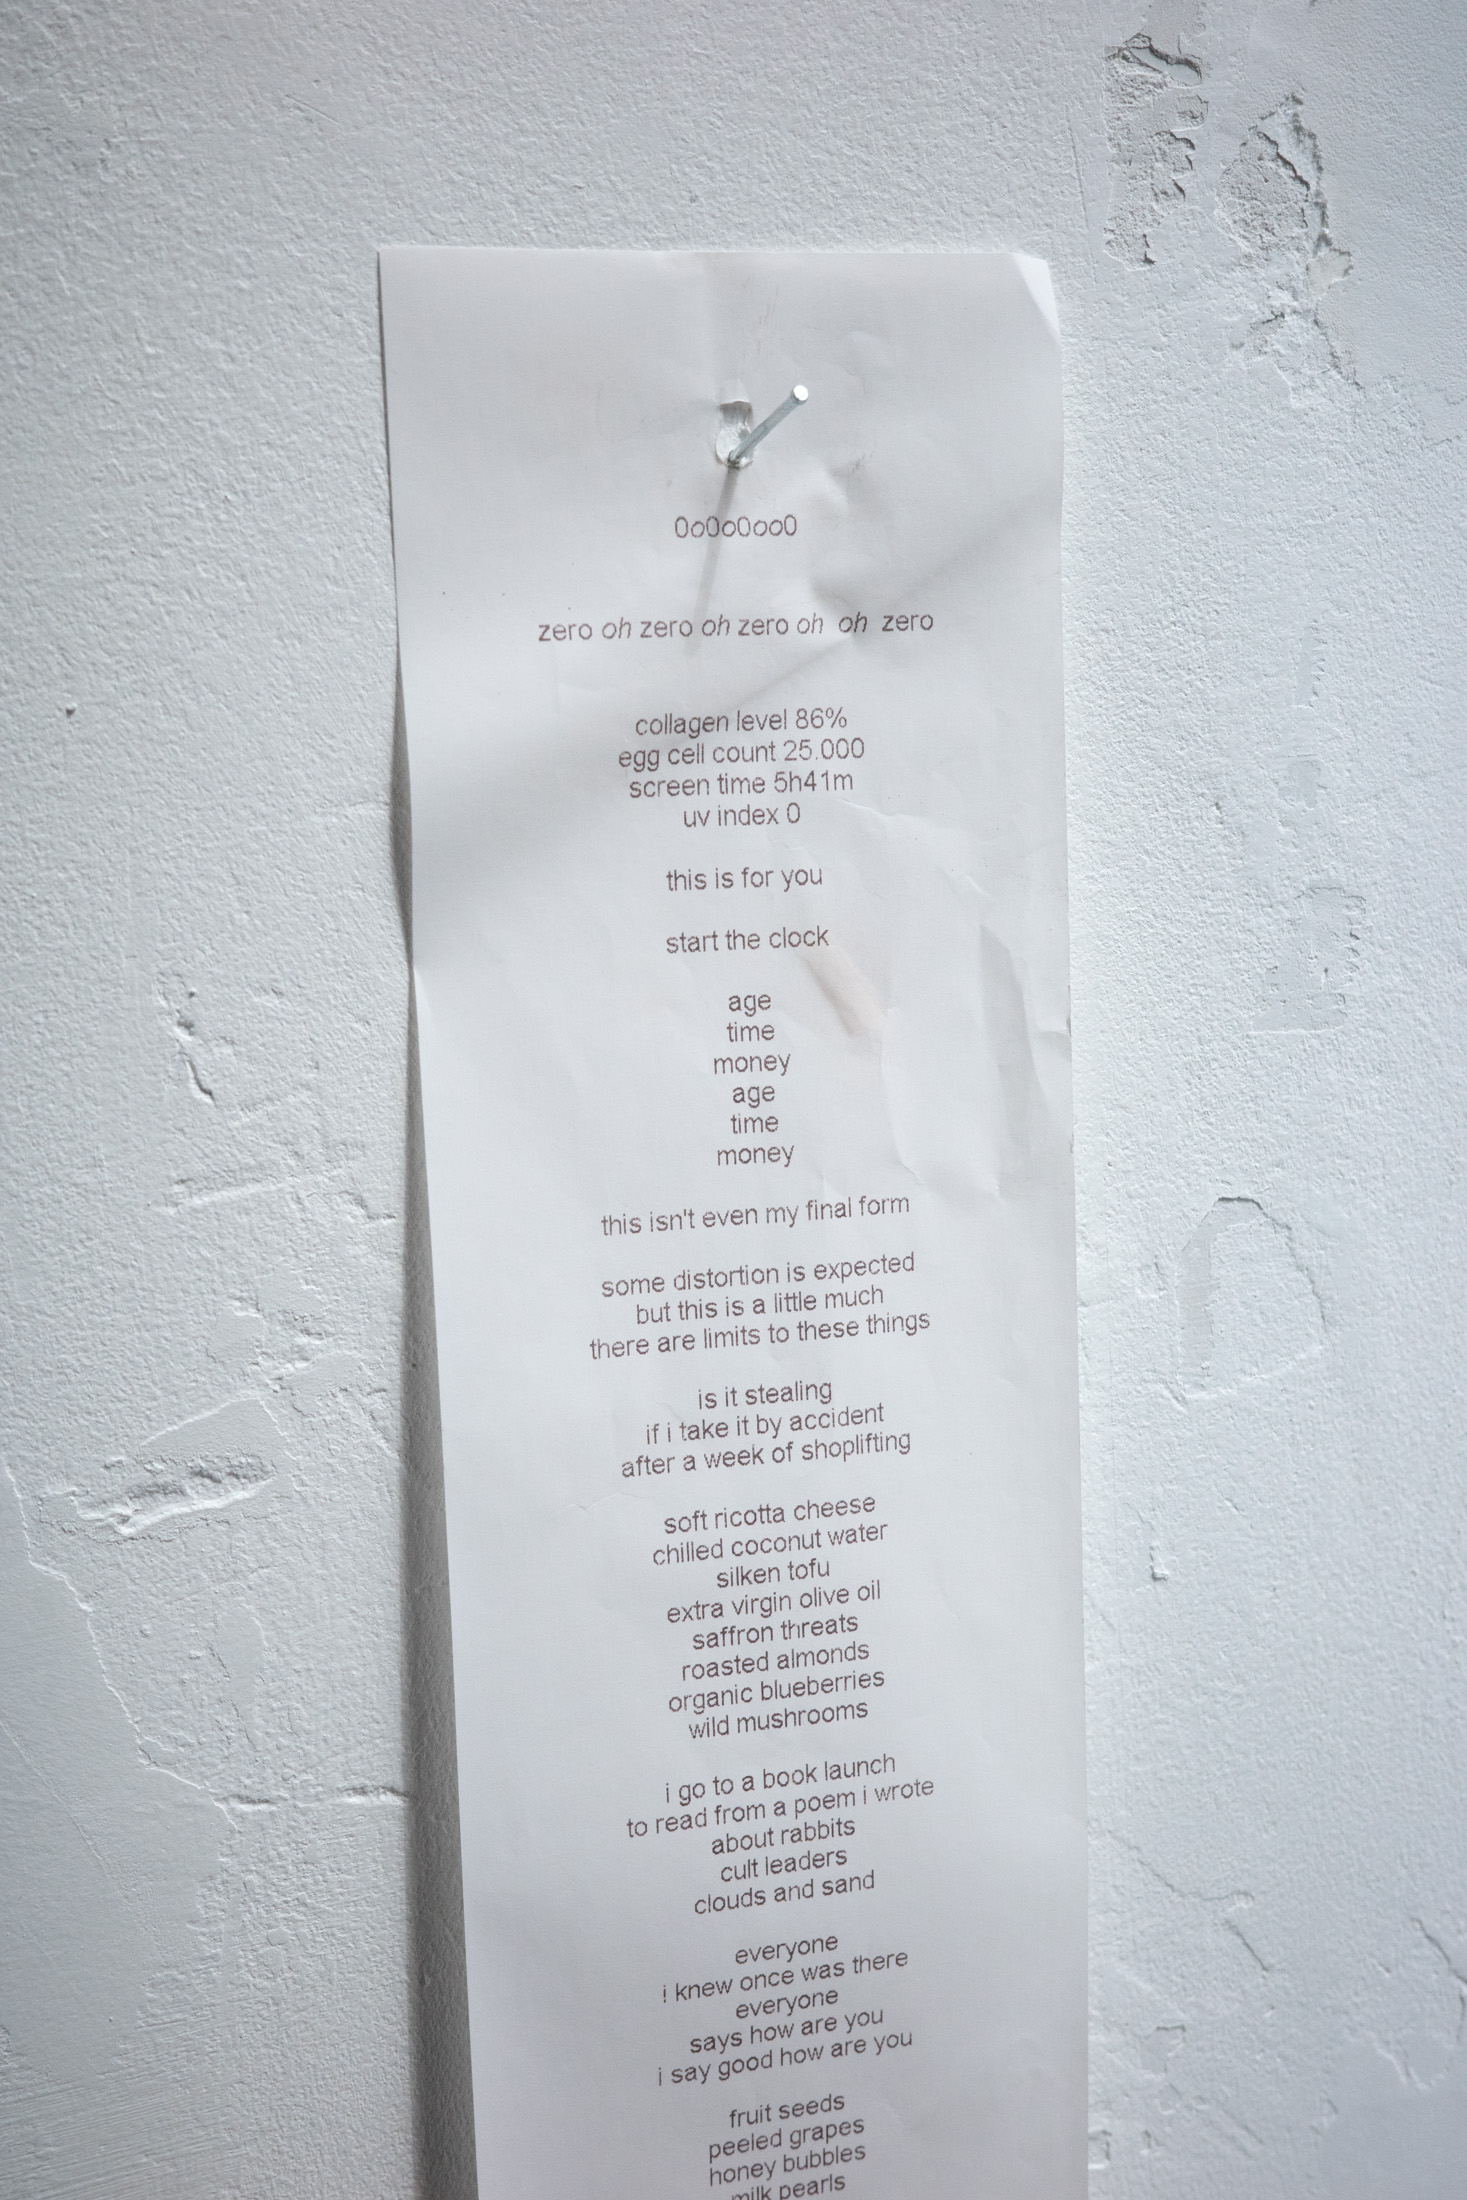 0o0o0oo0
zero oh zero oh zero oh oh zero
collagen level 86%
egg cell count 25.000
screen time 5h41m
uv index 0
this is for you
start the clock
age
time
money
age
time
money
this isn't even my final form
some distortion is expected
but this is a little much
there are limits to these things
is it stealing
if i take it by accident
after a week of shoplifting
soft ricotta cheese
chilled coconut water
silken tofu
extra virgin olive oil
saffron threats
roasted almonds
organic blueberries
wild mushrooms
i go to a book launch
to read from a poem i wrote
about rabbits
cult leaders
clouds and sand
everyone
i knew once was there
everyone
says how are you
i say good how are you
fruit seeds
peeled grapes
honey bubbles
milk pearls